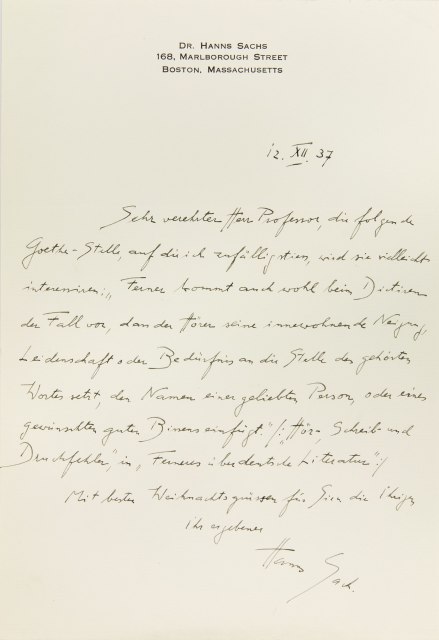 Dr. Hanns Sachs
168, Marlborough Street
Boston, Massachusetts
12. XII. 37
Sehr verehrter Herr Professor, die folgende
Goethe-Stelle, auf die ich zufällig stiess, wird sie vielleicht
interessiren: „Ferner kommt auch wohl beim Dictiren
der Fall vor, dass der Hörer seine innewohnende Neigung,
Leidenschaft oder Bedürfnis an die Stelle des gehörten
Wortes setzt, den Namen einer geliebten Person, oder eines
gewünschten guten Bissens einfügt." /: „Hör-, Schreib- und
Druckfehler", in „Ferneres über deutsche Literatur" :/
Mit besten Weihnachtsgrüssen für Sie u. die Ihrigen
Ihr ergebener
Hanns Sachs.